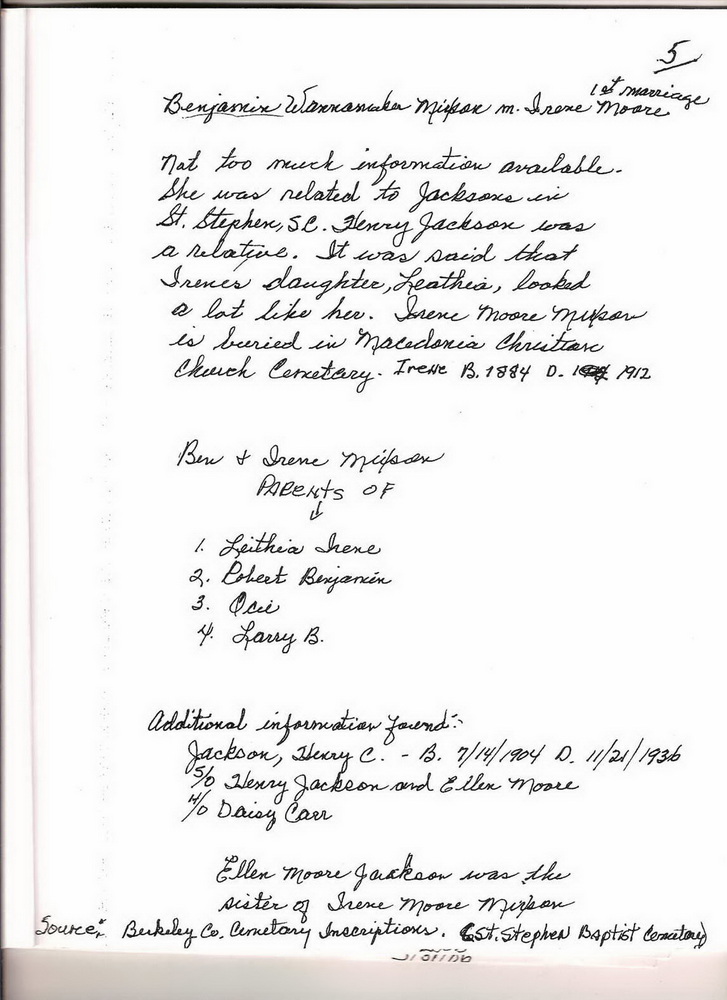 5
1st marriage
Benjamin Wannamaker Mixson m. Irene Moore
Not too much information available.
She was related to Jacksons in
St. Stephen, SC. Henry Jackson was
a relative. It was said that
Irene's daughter, Leathia, looked
a lot like her. Irene Moore Mixson
is buried in Macedonia Christian
Church Cemetary. Irene B. 1884 D. 1912
Ben & Irene Mixson
PARENTS OF
↓
1. Leithia Irene
2. Robert Benjamin
3. Ocie
4. Larry B.
Additional information found:-
Jackson, Henry C. - B. 7/14/1904 D. 11/21/1936
S/O Henry Jackson and Ellen Moore
H/O Daisy Carr
Ellen Moore Jackson was the
sister of Irene Moore Mixson
Source: Berkeley Co. Cemetary Inscriptions. (St. Stephen Baptist Cemetary)